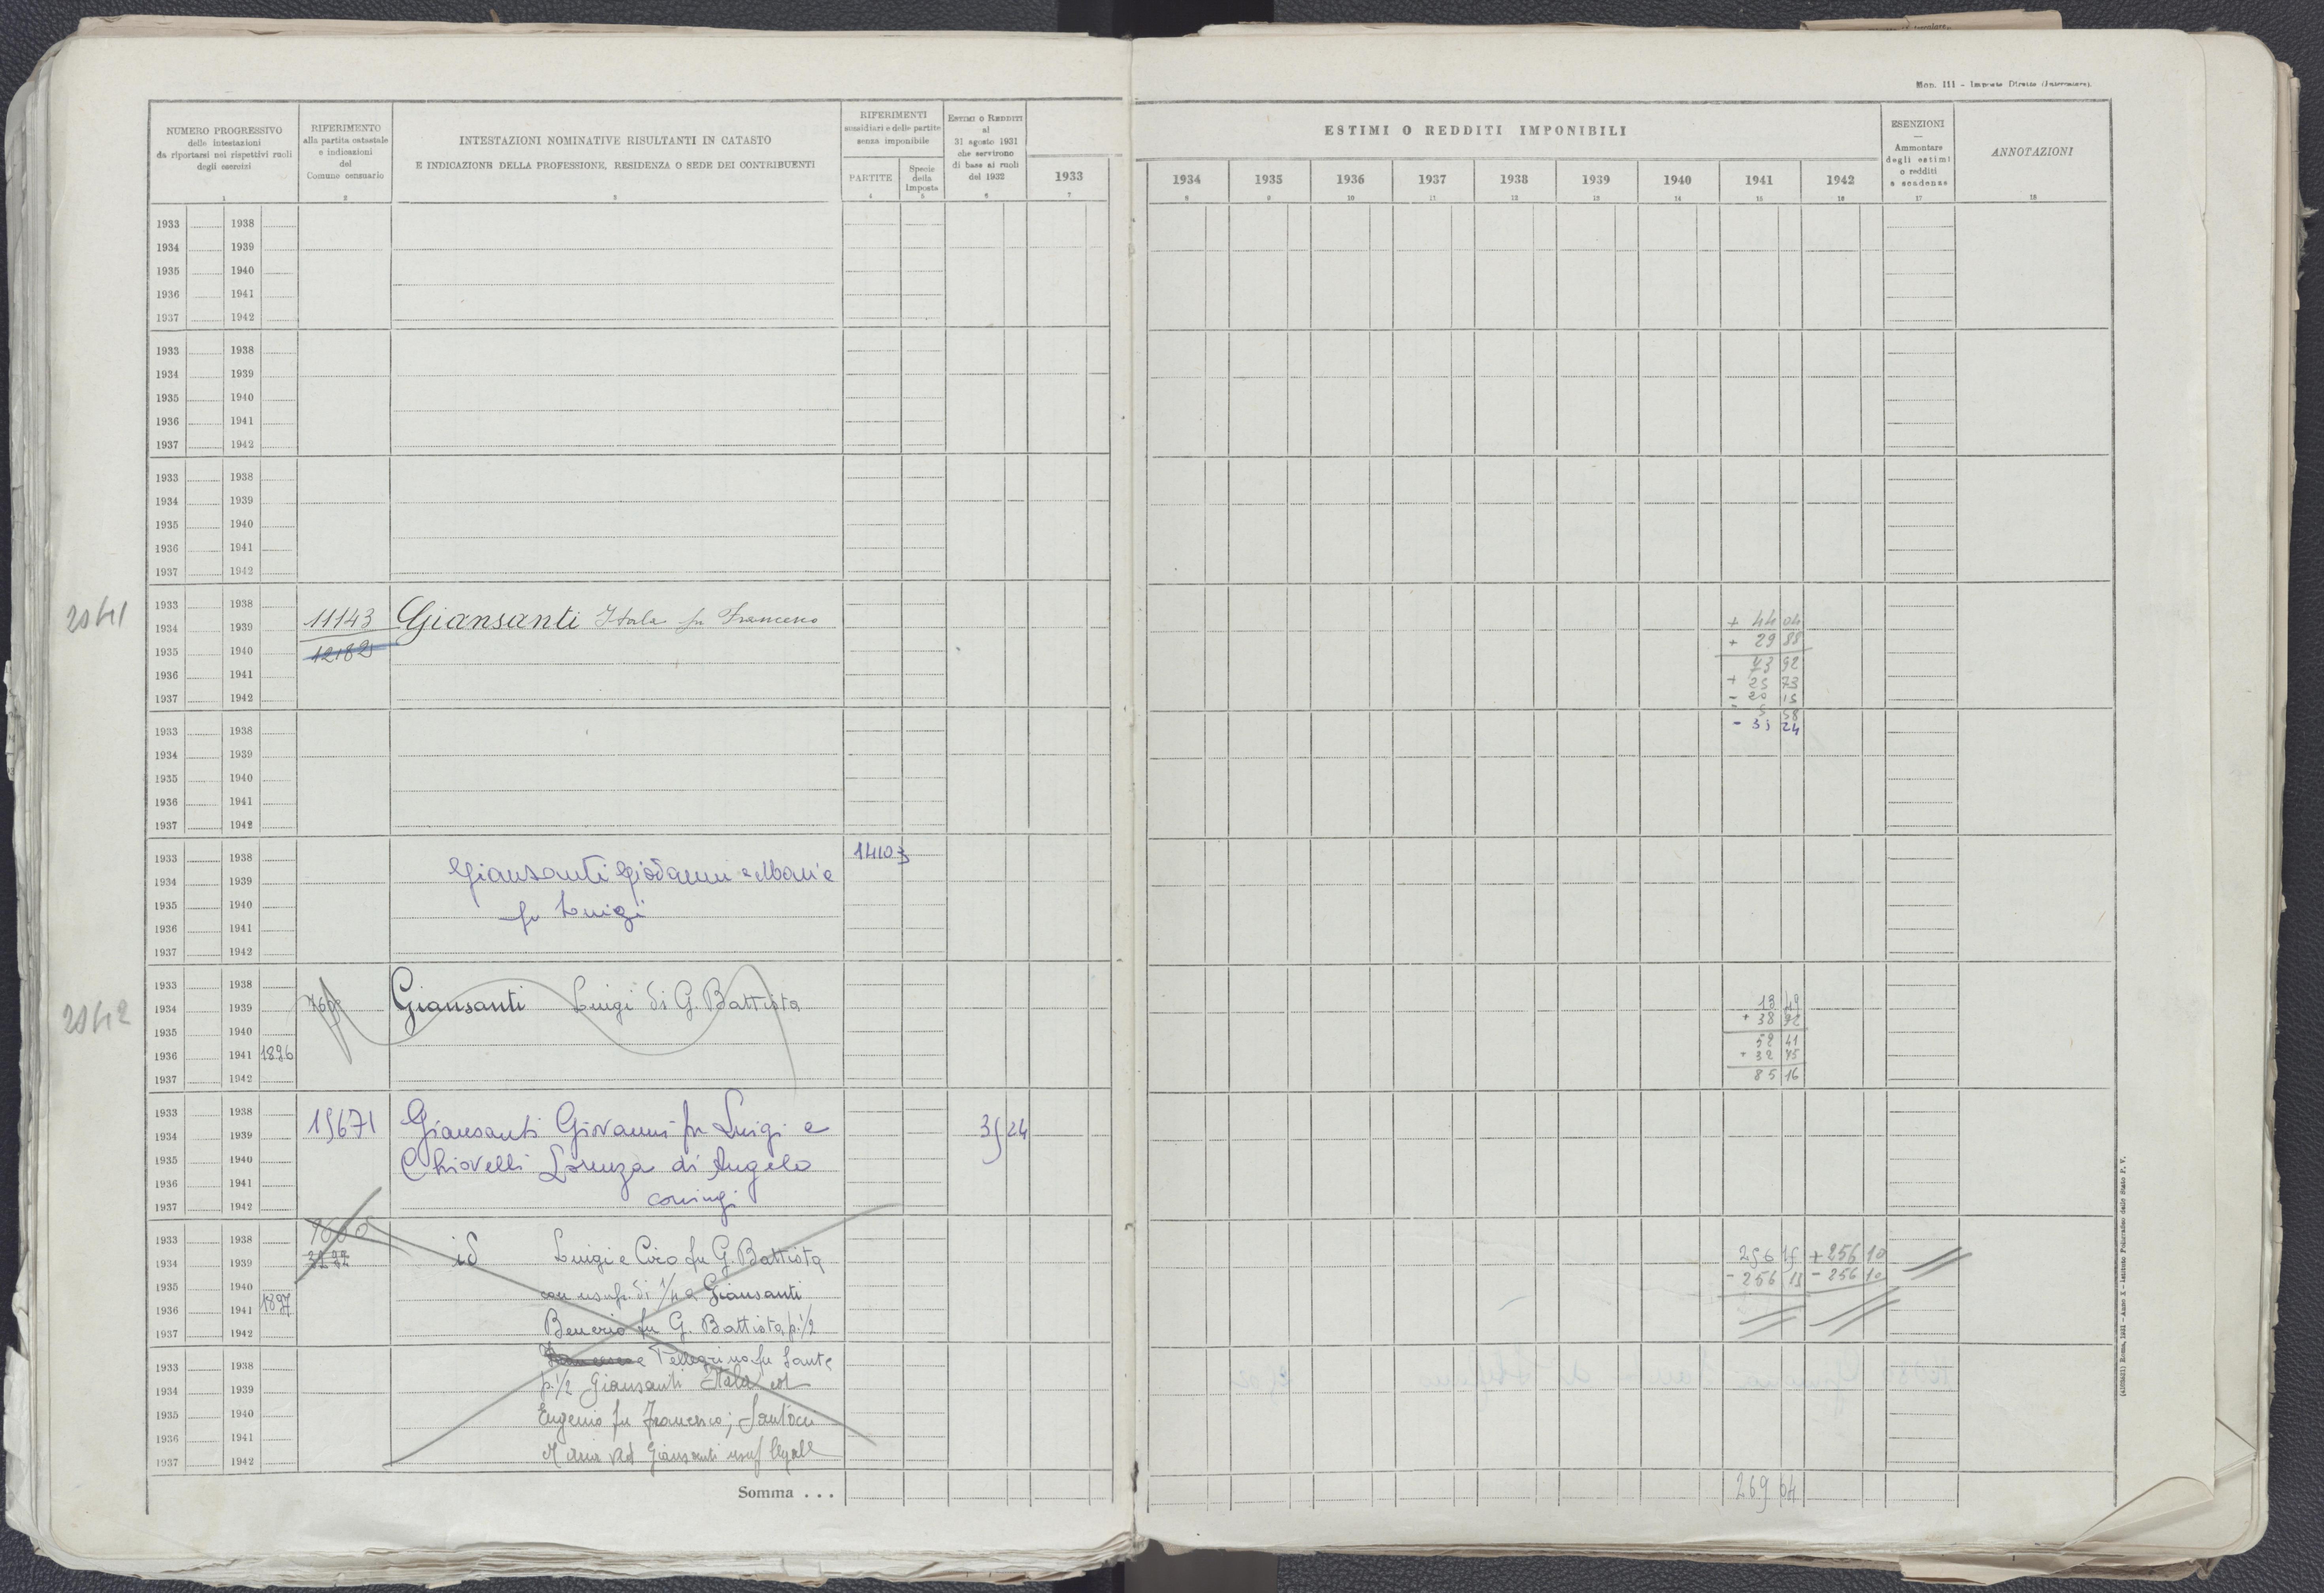 Mod. 111 - Imposte Dirette (Intercalare).
NUMERO PROGRESSIVO
delle intestazioni
da riportarsi nei rispettivi ruoli
degli esercizi
1
RIFERIMENTO
alla partita catastale
e indicazioni
del
Comune censuario
2
INTESTAZIONI NOMINATIVE RISULTANTI IN CATASTO
E INDICAZIONE DELLA PROFESSIONE, RESIDENZA O SEDE DEI CONTRIBUENTI
3
RIFERIMENTI
sussidiari e delle partite
senza imponibile
PARTITE
4
Specie
della
Imposta
5
ESTIMI O REDDITI
al
31 agosto 1931
che servirono
di base ai ruoli
del 1932
6
1933
7
ESTIMI O REDDITI IMPONIBILI
1934 1935 1936 1937 1938 1939 1940 1941 1942
8 9 10 11 12 13 14 15 16
ESENZIONI
Ammontare
degli estimi
o redditi
e scadenze
17
ANNOTAZIONI
18
1933 1938
1934 1939
1935 1940
1936 1941
1937 1942
1933 1938
1934 1939
1935 1940
1936 1941
1937 1942
1933 1938
1934 1939
1935 1940
1936 1941
1937 1942
1933 1938
1934 1939 11143 Giansanti Itala fu Francesco + 44 04
1935 1940 + 29 88
1936 1941 73 92
1937 1942 + 25 73
- 20 15
5 58
1933 1938 - 35 24
1934 1939
1935 1940
1936 1941
1937 1942
1933 1938 14103
1934 1939 Giansanti Giovanni e Maria
1935 1940 fu Luigi
1936 1941
1937 1942
1933 1938
1934 1939 Giansanti Luigi di G. Battista 13 49
1935 1940 + 38 92
1936 1941 1896 52 41
1937 1942 + 32 75
85 16
1933 1938
1934 1939 15671 Giansanti Giovanni fu Luigi e 35 24
1935 1940 Chiovelli Lorenza di Angelo
1936 1941
1937 1942 coniugi
1933 1938
1934 1939 id Luigi e Ciro fu G. Battista 256 15 + 256 10
1935 1940 con usuf. di 1/4 a Giansanti - 256 15 - 256 10
1936 1941 1897
1937 1942 fu G. Battista p. 1/2
1933 1938 Pellegrino fu Sante
1934 1939 p. 1/2 Giansanti Itala ed
1935 1940 Eugenio fu Francesco;
1936 1941
1937 1942 Maria Ved Giansanti usuf legale
Somma . . . 269 04